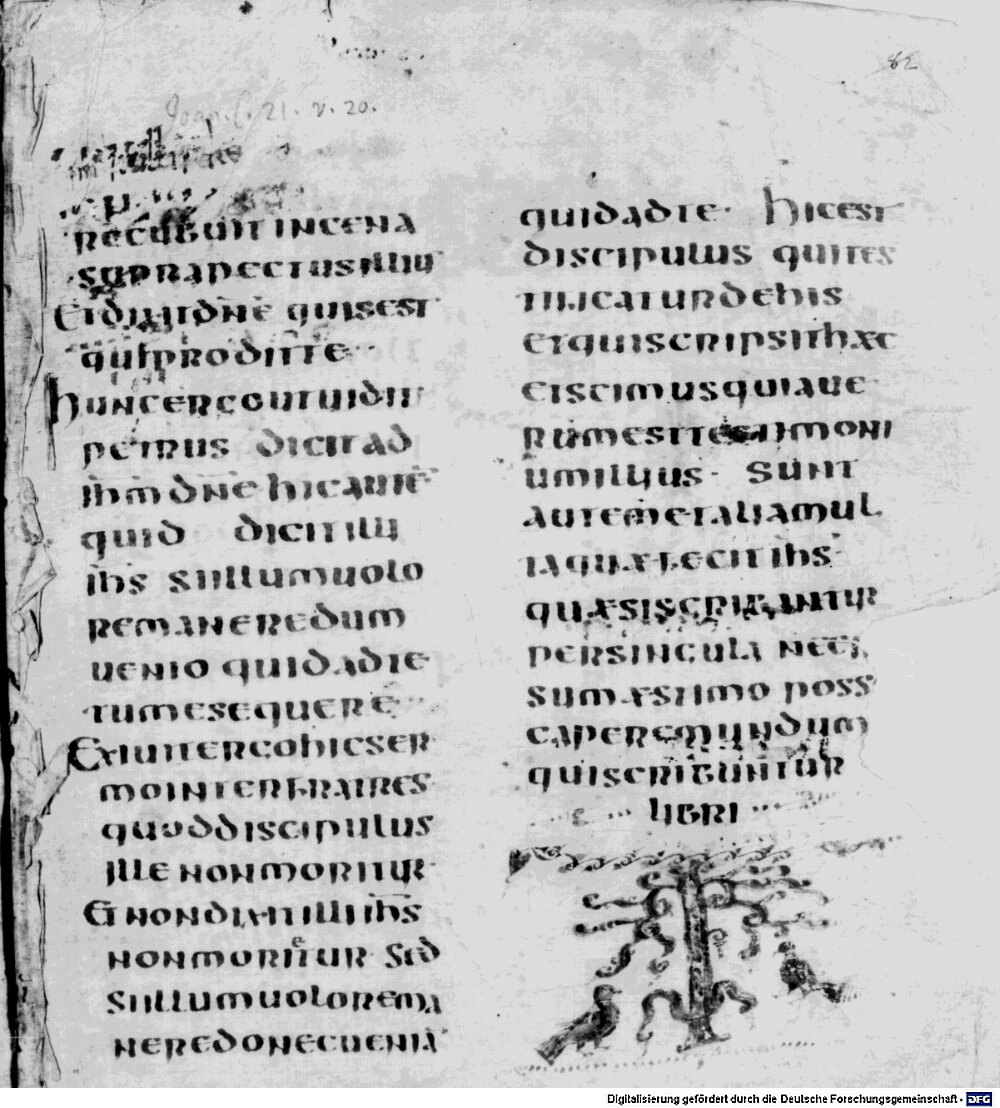 82
Joan. C. 21. v. 20.
RECUBUIT IN CENA
SUPRA PECTUS ILLIUS
ET DIXIT DNE QUIS EST
QUI PRODIT TE
HUNC ERGO UT UIDIT
PETRUS DICIT AD
IHM DNE HIC AUTE
QUID DICIT ILLI
IHS SI ILLUM UOLO
REMANERE DUM
UENIO QUID AD TE
TU ME SEQUERE
EXIUIT ERGO HIC SER
MO INTER FRATRES
QUOD DISCIPULUS
ILLE NON MORITUR
ET NON DIXIT ILLI IHS
NON MORITUR SED
SI ILLUM UOLO REMA
NERE DONEC UENIA
QUID AD TE HIC EST
DISCIPULUS QUI TES
TIFICATUR DE HIS
ET QUI SCRIPSIT HÆC
ET SCIMUS QUIA UE
RUM EST TESTIMONI
UM ILLIUS SUNT
AUTEM ET ALIA MUL
TA QUÆ FECIT IHS
QUÆ SI SCRIBANTUR
PER SINGULA NEC
SUM ÆSTIMO POSS
CAPERE MUNDUM
QUI SCRIBUNTUR
LIBRI
Digitalisierung gefördert durch die Deutsche Forschungsgemeinschaft - DFG